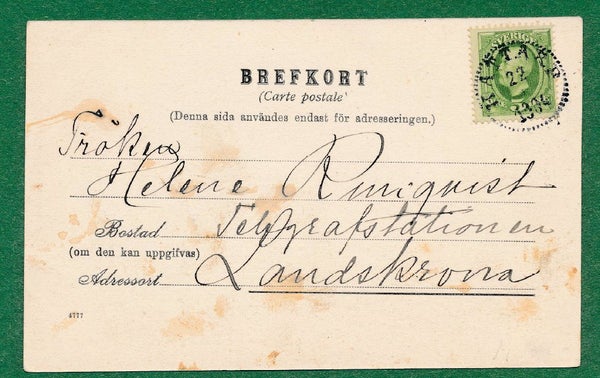 SVERIGE
22
BREFKORT
(Carte postale)
(Denna sida användes endast för adresseringen.)
Fröken
Helene Runquist
Bostad Telegrafstationen
(om den kan uppgifvas)
Adressort Landskrona
4777